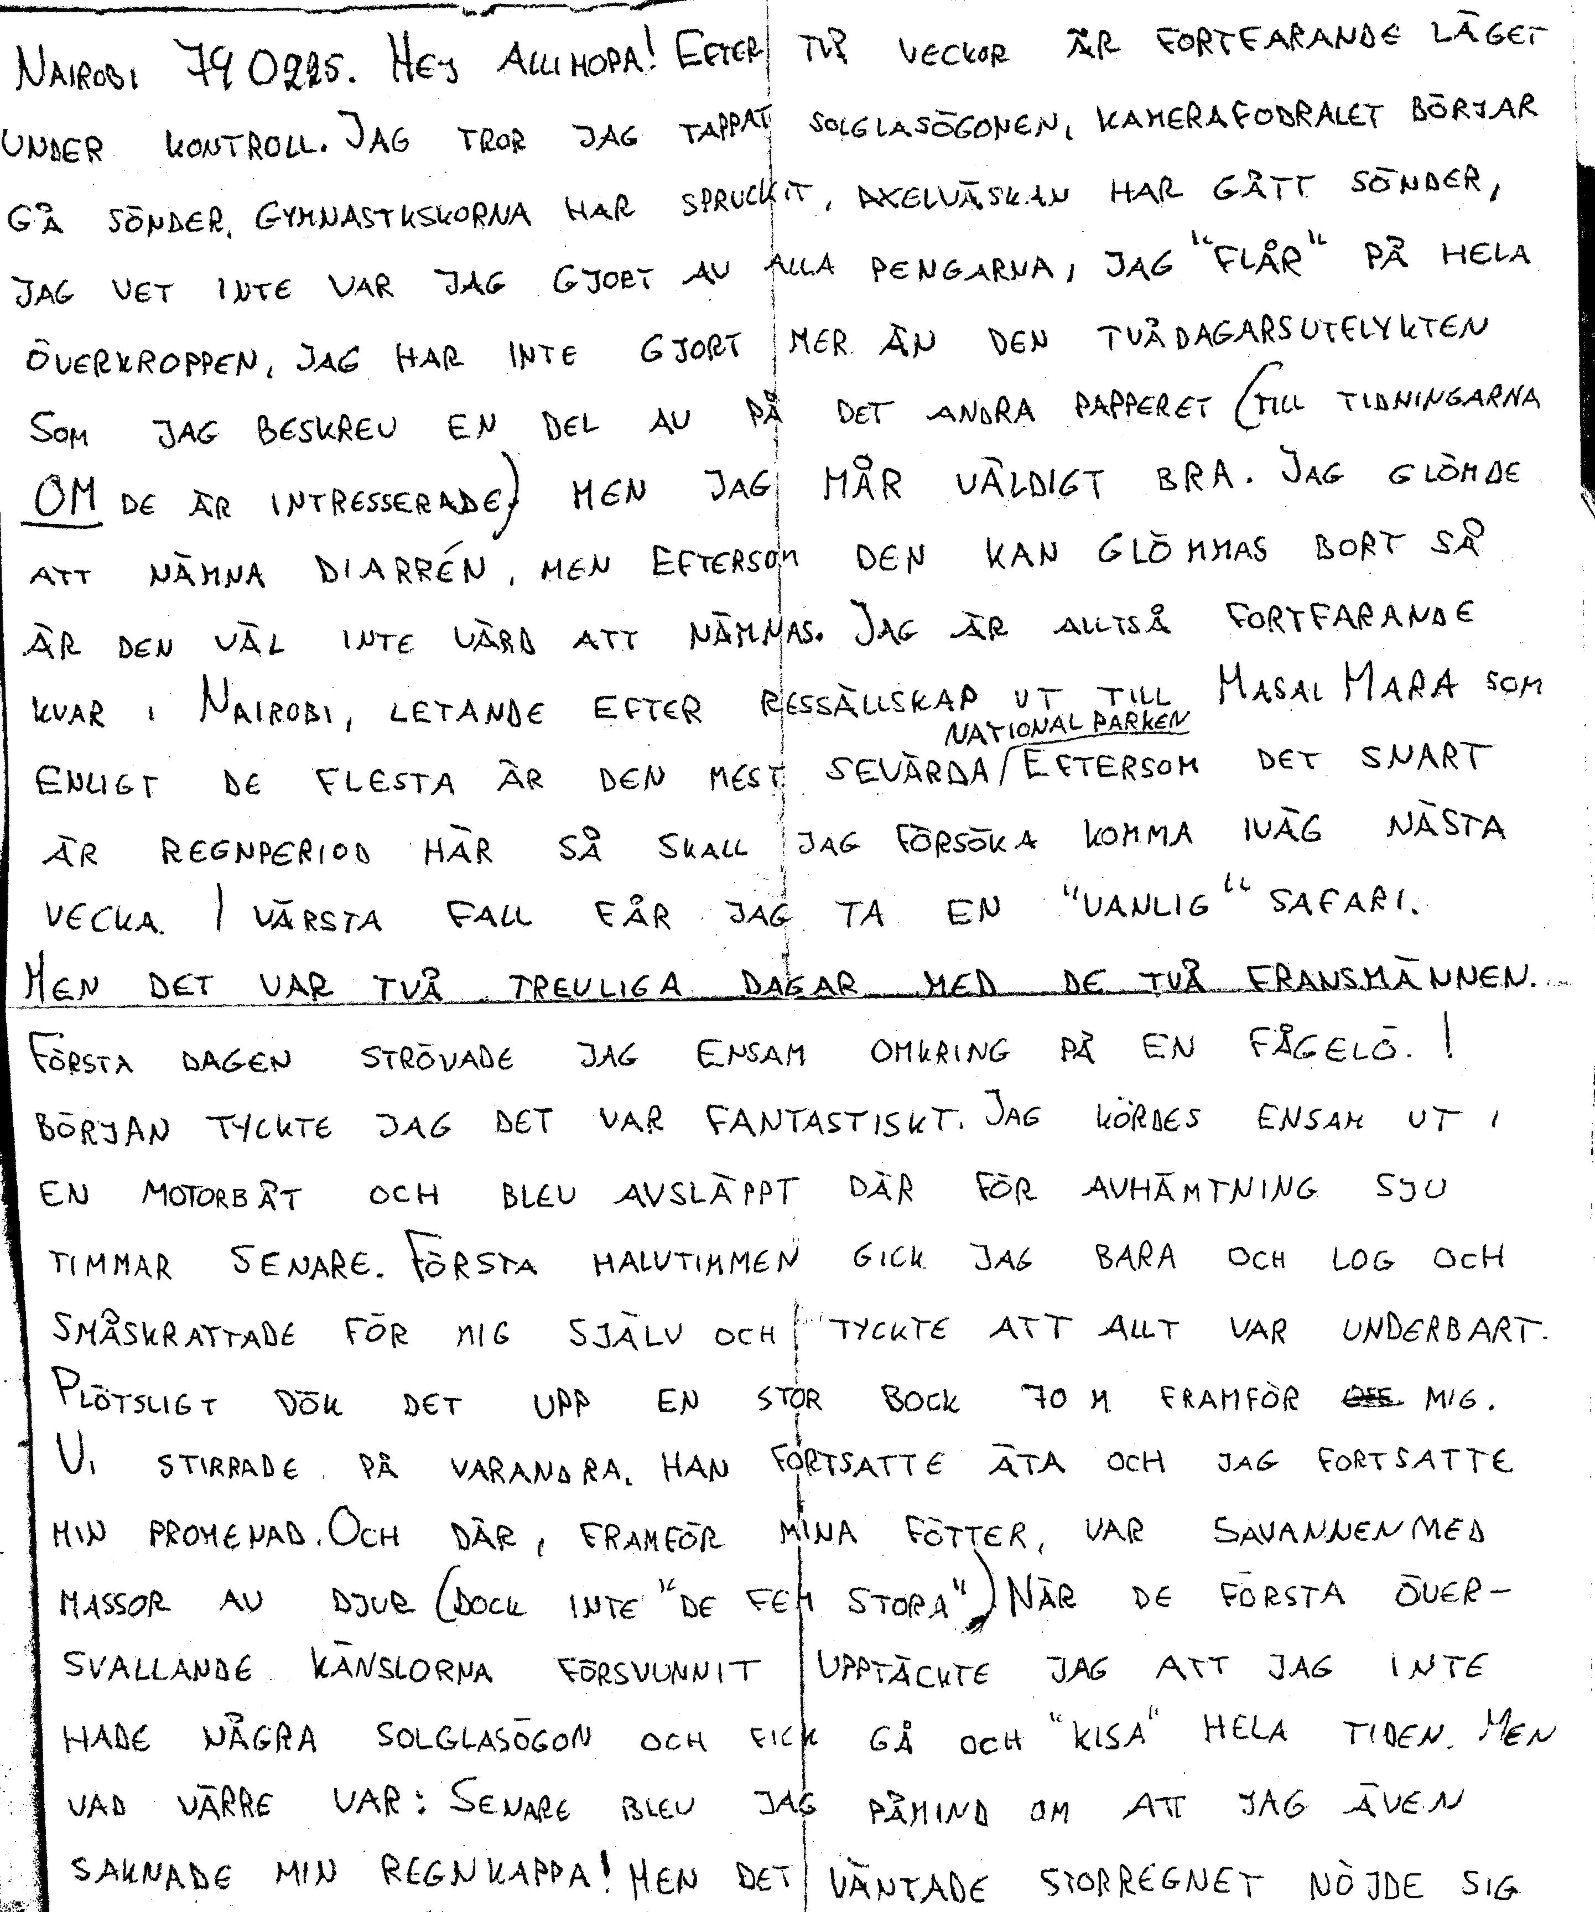 NAIROBI 790225. HEJ ALLIHOPA! EFTER TVÅ VECKOR ÄR FORTFARANDE LÄGET
UNDER KONTROLL. JAG TROR JAG TAPPAT SOLGLASÖGONEN, KAMERAFODRALET BÖRJAR
GÅ SÖNDER, GYMNASTKSKORNA HAR SPRUCKIT, AXELVÄSKAN HAR GÅTT SÖNDER,
JAG VET INTE VAR JAG GJORT AV ALLA PENGARNA, JAG "FLÅR" PÅ HELA
ÖVERKROPPEN, JAG HAR INTE GJORT MER ÄN DEN TVÅDAGARSUTELYKTEN
SOM JAG BESKREV EN DEL AV PÅ DET ANDRA PAPPERET (TILL TIDNINGARNA
OM DE ÄR INTRESSERADE) MEN JAG MÅR VÄLDIGT BRA. JAG GLÖMDE
ATT NÄMNA DIARRÉN, MEN EFTERSOM DEN KAN GLÖMMAS BORT SÅ
ÄR DEN VÄL INTE VÄRD ATT NÄMNAS. JAG ÄR ALLTSÅ FORTFARANDE
KVAR I NAIROBI, LETANDE EFTER RESSÄLLSKAP UT TILL MASAI MARA SOM
NATIONALPARKEN
ENLIGT DE FLESTA ÄR DEN MEST SEVÄRDA/EFTERSOM DET SNART
ÄR REGNPERIOD HÄR SÅ SKALL JAG FÖRSÖKA KOMMA IVÄG NÄSTA
VECKA. I VÄRSTA FALL FÅR JAG TA EN "VANLIG" SAFARI.
MEN DET VAR TVÅ TREVLIGA DAGAR MED DE TVÅ FRANSMÄNNEN.
FÖRSTA DAGEN STRÖVADE JAG ENSAM OMKRING PÅ EN FÅGELÖ. I
BÖRJAN TYCKTE JAG DET VAR FANTASTISKT. JAG KÖRDES ENSAM UT I
EN MOTORBÅT OCH BLEV AVSLÄPPT DÄR FÖR AVHÄMTNING SJU
TIMMAR SENARE. FÖRSTA HALVTIMMEN GICK JAG BARA OCH LOG OCH
SMÅSKRATTADE FÖR MIG SJÄLV OCH TYCKTE ATT ALLT VAR UNDERBART.
PLÖTSLIGT DÖK DET UPP EN STOR BOCK 70 M FRAMFÖR MIG.
VI STIRRADE PÅ VARANDRA. HAN FORTSATTE ÄTA OCH JAG FORTSATTE
MIN PROMENAD. OCH DÄR, FRAMFÖR MINA FÖTTER, VAR SAVANNEN MED
MASSOR AV DJUR (DOCK INTE "DE FEM STORA") NÄR DE FÖRSTA ÖVER-
SVALLANDE KÄNSLORNA FÖRSVUNNIT UPPTÄCKTE JAG ATT JAG INTE
HADE NÅGRA SOLGLASÖGON OCH FICK GÅ OCH "KISA" HELA TIDEN. MEN
VAD VÄRRE VAR: SENARE BLEV JAG PÅMIND OM ATT JAG ÄVEN
SAKNADE MIN REGNKAPPA! MEN DET VÄNTADE STORREGNET NÖJDE SIG